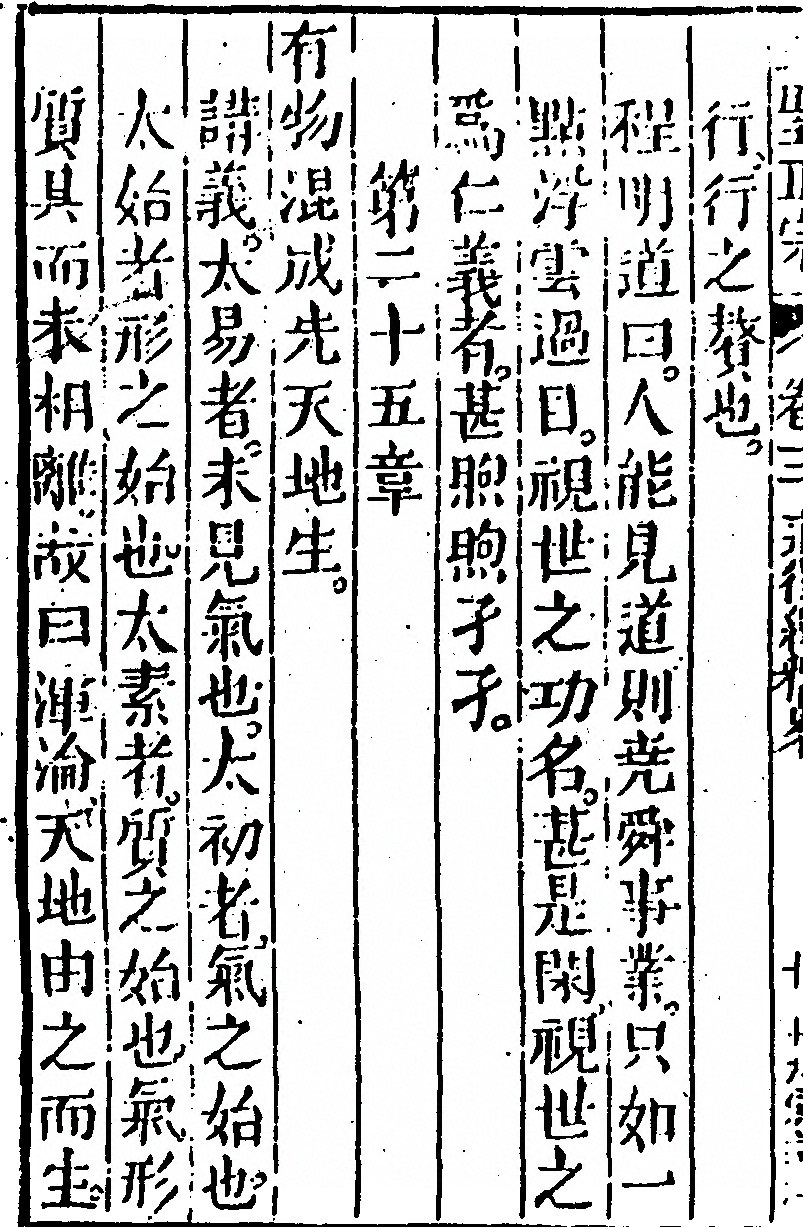 行、行之贅也。
程明道曰。人能見道則尭舜事業。只如一
點浮雲過目。視世之功名。甚是閑、視世之
爲仁義者。甚煦煦孑孑。
第二十五章
有物混成先天地生。
講義。太易者。未見氣也。太初者、氣之始也。
太始者形之始也、太素者。質之始也、氣、形
質具而未相離、故曰渾淪、天地由之而生。